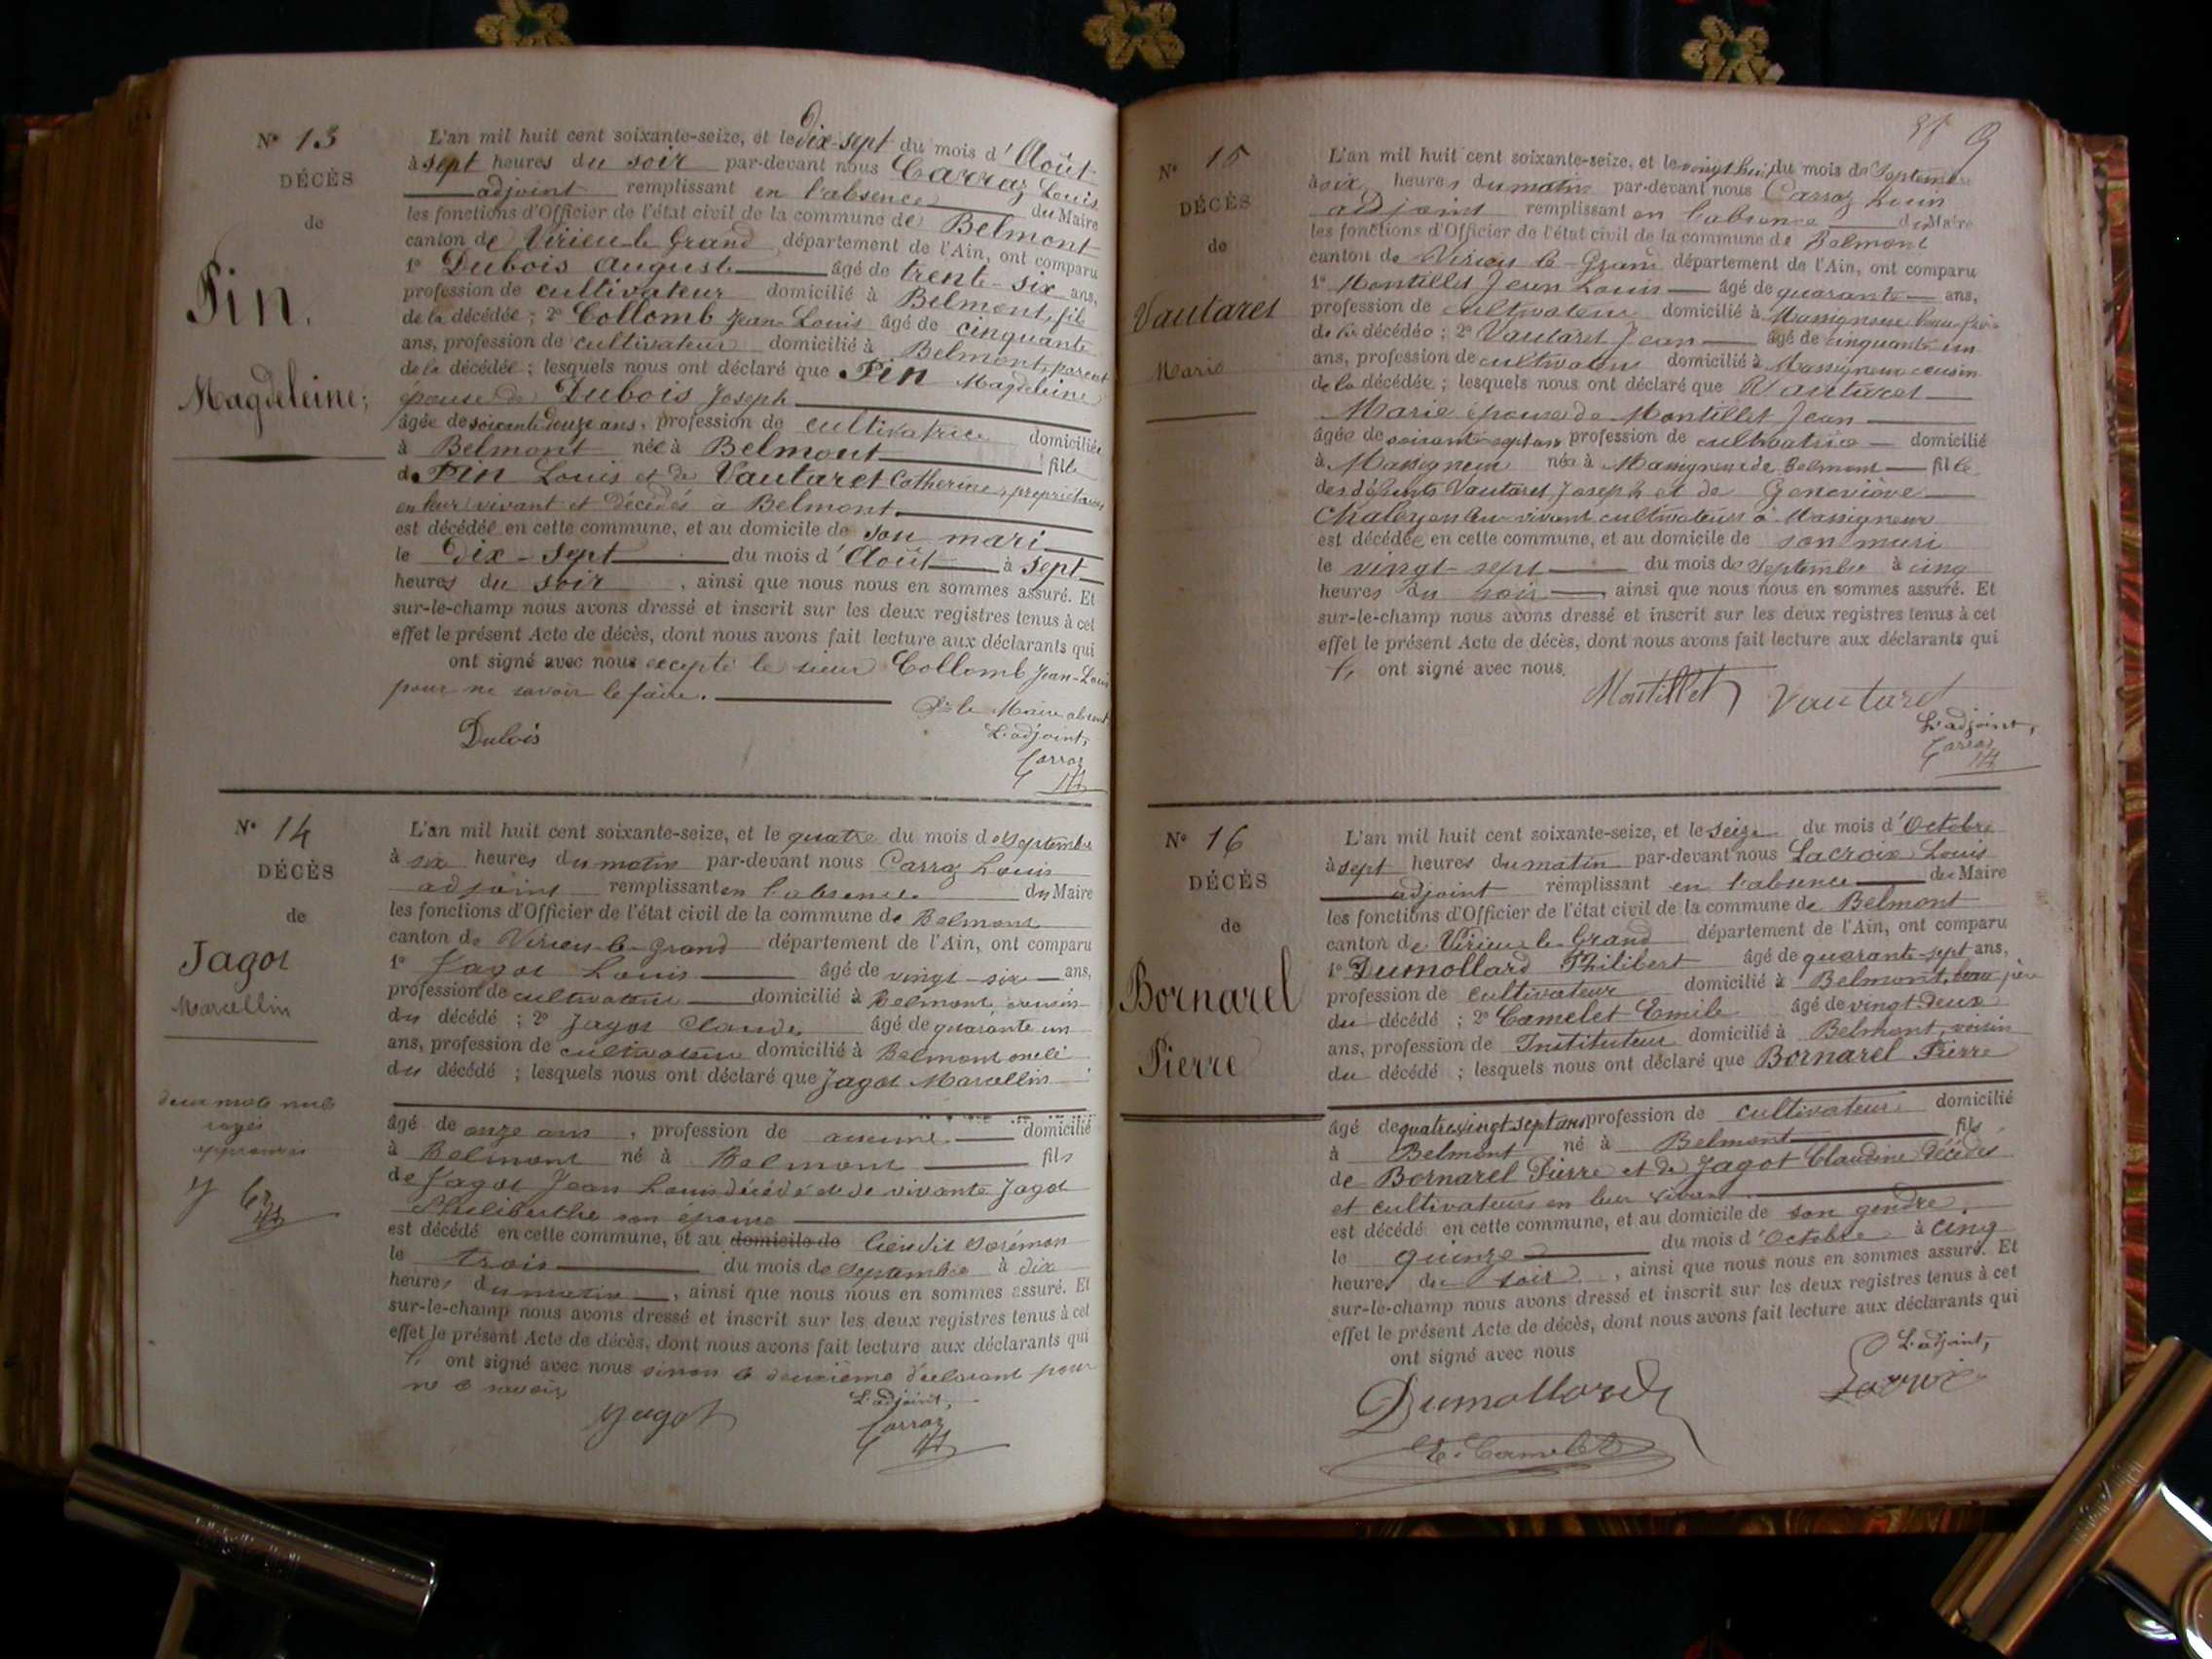 N° 13
DÉCÈS
de
Pin.
Magdeleine;
L'an mil huit cent soixante-seize, et le dix-sept du mois d'Août
à sept heures du soir par-devant nous Carraz Louis
adjoint remplissant en l'absence du Maire
les fonctions d'Officier de l'état civil de la commune de Belmont
canton de Virieu-le Grand département de l'Ain, ont comparu
1° Dubois Auguste âgé de trente-six ans,
profession de cultivateur domicilié à Belmont, fils
de la décédée ; 2° Collomb Jean-Louis âgé de cinquante
ans, profession de cultivateur domicilié à Belmont, parent
de la décédée ; lesquels nous ont déclaré que Pin Magdeleine
épouse de Dubois Joseph
âgée de soixante douze ans, profession de cultivatrice domiciliée
à Belmont née à Belmont fille
de Pin Louis et de Vautaret Catherine, propriétaires
en leur vivant et décédés à Belmont.
est décédée en cette commune, et au domicile de son mari
le Dix-sept du mois d'Août à sept
heures du soir, ainsi que nous nous en sommes assuré. Et
sur-le-champ nous avons dressé et inscrit sur les deux registres tenus à cet
effet le présent Acte de décès, dont nous avons fait lecture aux déclarants qui
ont signé avec nous excepté le sieur Collomb Jean-Louis
pour ne savoir le faire.
Pr le Maire absent
Dubois
L'adjoint,
Carraz
N° 14
DÉCÈS
de
Jagot
Marcellin
deux mots nuls
rayés
approuvés
L'an mil huit cent soixante-seize, et le quatre du mois de Septembre
à six heures du matin par-devant nous Carraz Louis
adjoint remplissant en l'absence du Maire
les fonctions d'Officier de l'état civil de la commune de Belmont
canton de Virieu-le-Grand département de l'Ain, ont comparu
1° Jagot Louis âgé de vingt-six ans,
profession de cultivateur domicilié à Belmont, cousin
du décédé ; 2° Jagot Claude âgé de quarante un
ans, profession de cultivateur domicilié à Belmont oncle
du décédé ; lesquels nous ont déclaré que Jagot Marcellin
âgé de onze ans, profession de aucune domicilié
à Belmont né à Belmont fils
de Jagot Jean Louis décédé et de vivante Jagot
Philiberthe son épouse
est décédé en cette commune, et au domicile de lieu dit
le trois du mois de Septembre à dix
heures du matin, ainsi que nous nous en sommes assuré. Et
sur-le-champ nous avons dressé et inscrit sur les deux registres tenus à cet
effet le présent Acte de décès, dont nous avons fait lecture aux déclarants qui
ont signé avec nous sinon le deuxième déclarant pour
ne le savoir
Jagot
L'adjoint,
Carraz
9
N° 15
DÉCÈS
de
Vautaret
Marie
L'an mil huit cent soixante-seize, et le vingt huit du mois de Septembre
à six heures du matin par-devant nous Carraz Louis
adjoint remplissant en l'absence du Maire
les fonctions d'Officier de l'état civil de la commune de Belmont
canton de Virieu le-Grand département de l'Ain, ont comparu
1° Montillet Jean Louis âgé de quarante ans,
profession de cultivateur domicilié à Massigneux beau frère
de la décédée ; 2° Vautaret Jean âgé de cinquante un
ans, profession de cultivateur domicilié à Massigneux cousin
de la décédée ; lesquels nous ont déclaré que Vautaret
Marie épouse de Montillet Jean
âgée de soixante sept ans profession de cultivatrice domicilié
à Massigneux née à Massigneux de Belmont fille
des défunts Vautaret Joseph et de Geneviève
Chaley en leur vivant cultivateurs à Massigneux
est décédée en cette commune, et au domicile de son mari
le vingt-sept du mois de Septembre à cinq
heures du soir, ainsi que nous nous en sommes assuré. Et
sur-le-champ nous avons dressé et inscrit sur les deux registres tenus à cet
effet le présent Acte de décès, dont nous avons fait lecture aux déclarants qui
ont signé avec nous.
Montillet Vautaret
L'adjoint,
Carraz
N° 16
DÉCÈS
de
Bornarel
Pierre
L'an mil huit cent soixante-seize, et le seize du mois d'Octobre
à sept heures du matin par-devant nous Lacroix Louis
adjoint remplissant en l'absence du Maire
les fonctions d'Officier de l'état civil de la commune de Belmont
canton de Virieu le Grand département de l'Ain, ont comparu
1° Dumollard Philibert âgé de quarante-sept ans,
profession de cultivateur domicilié à Belmont, beau père
du décédé ; 2° Camelet Emile âgé de vingt deux
ans, profession de Instituteur domicilié à Belmont, voisin
du décédé ; lesquels nous ont déclaré que Bornarel Pierre
âgé de quatre vingt sept ans profession de cultivateur domicilié
à Belmont né à Belmont fils
de Bornarel Pierre et de Jagot Claudine décédés
et cultivateurs en leur vivant
est décédé en cette commune, et au domicile de son gendre.
le quinze du mois d'Octobre à cinq
heures du soir, ainsi que nous nous en sommes assuré. Et
sur-le-champ nous avons dressé et inscrit sur les deux registres tenus à cet
effet le présent Acte de décès, dont nous avons fait lecture aux déclarants qui
ont signé avec nous
L'adjoint,
Dumollard
Lacroix
E. Camelet